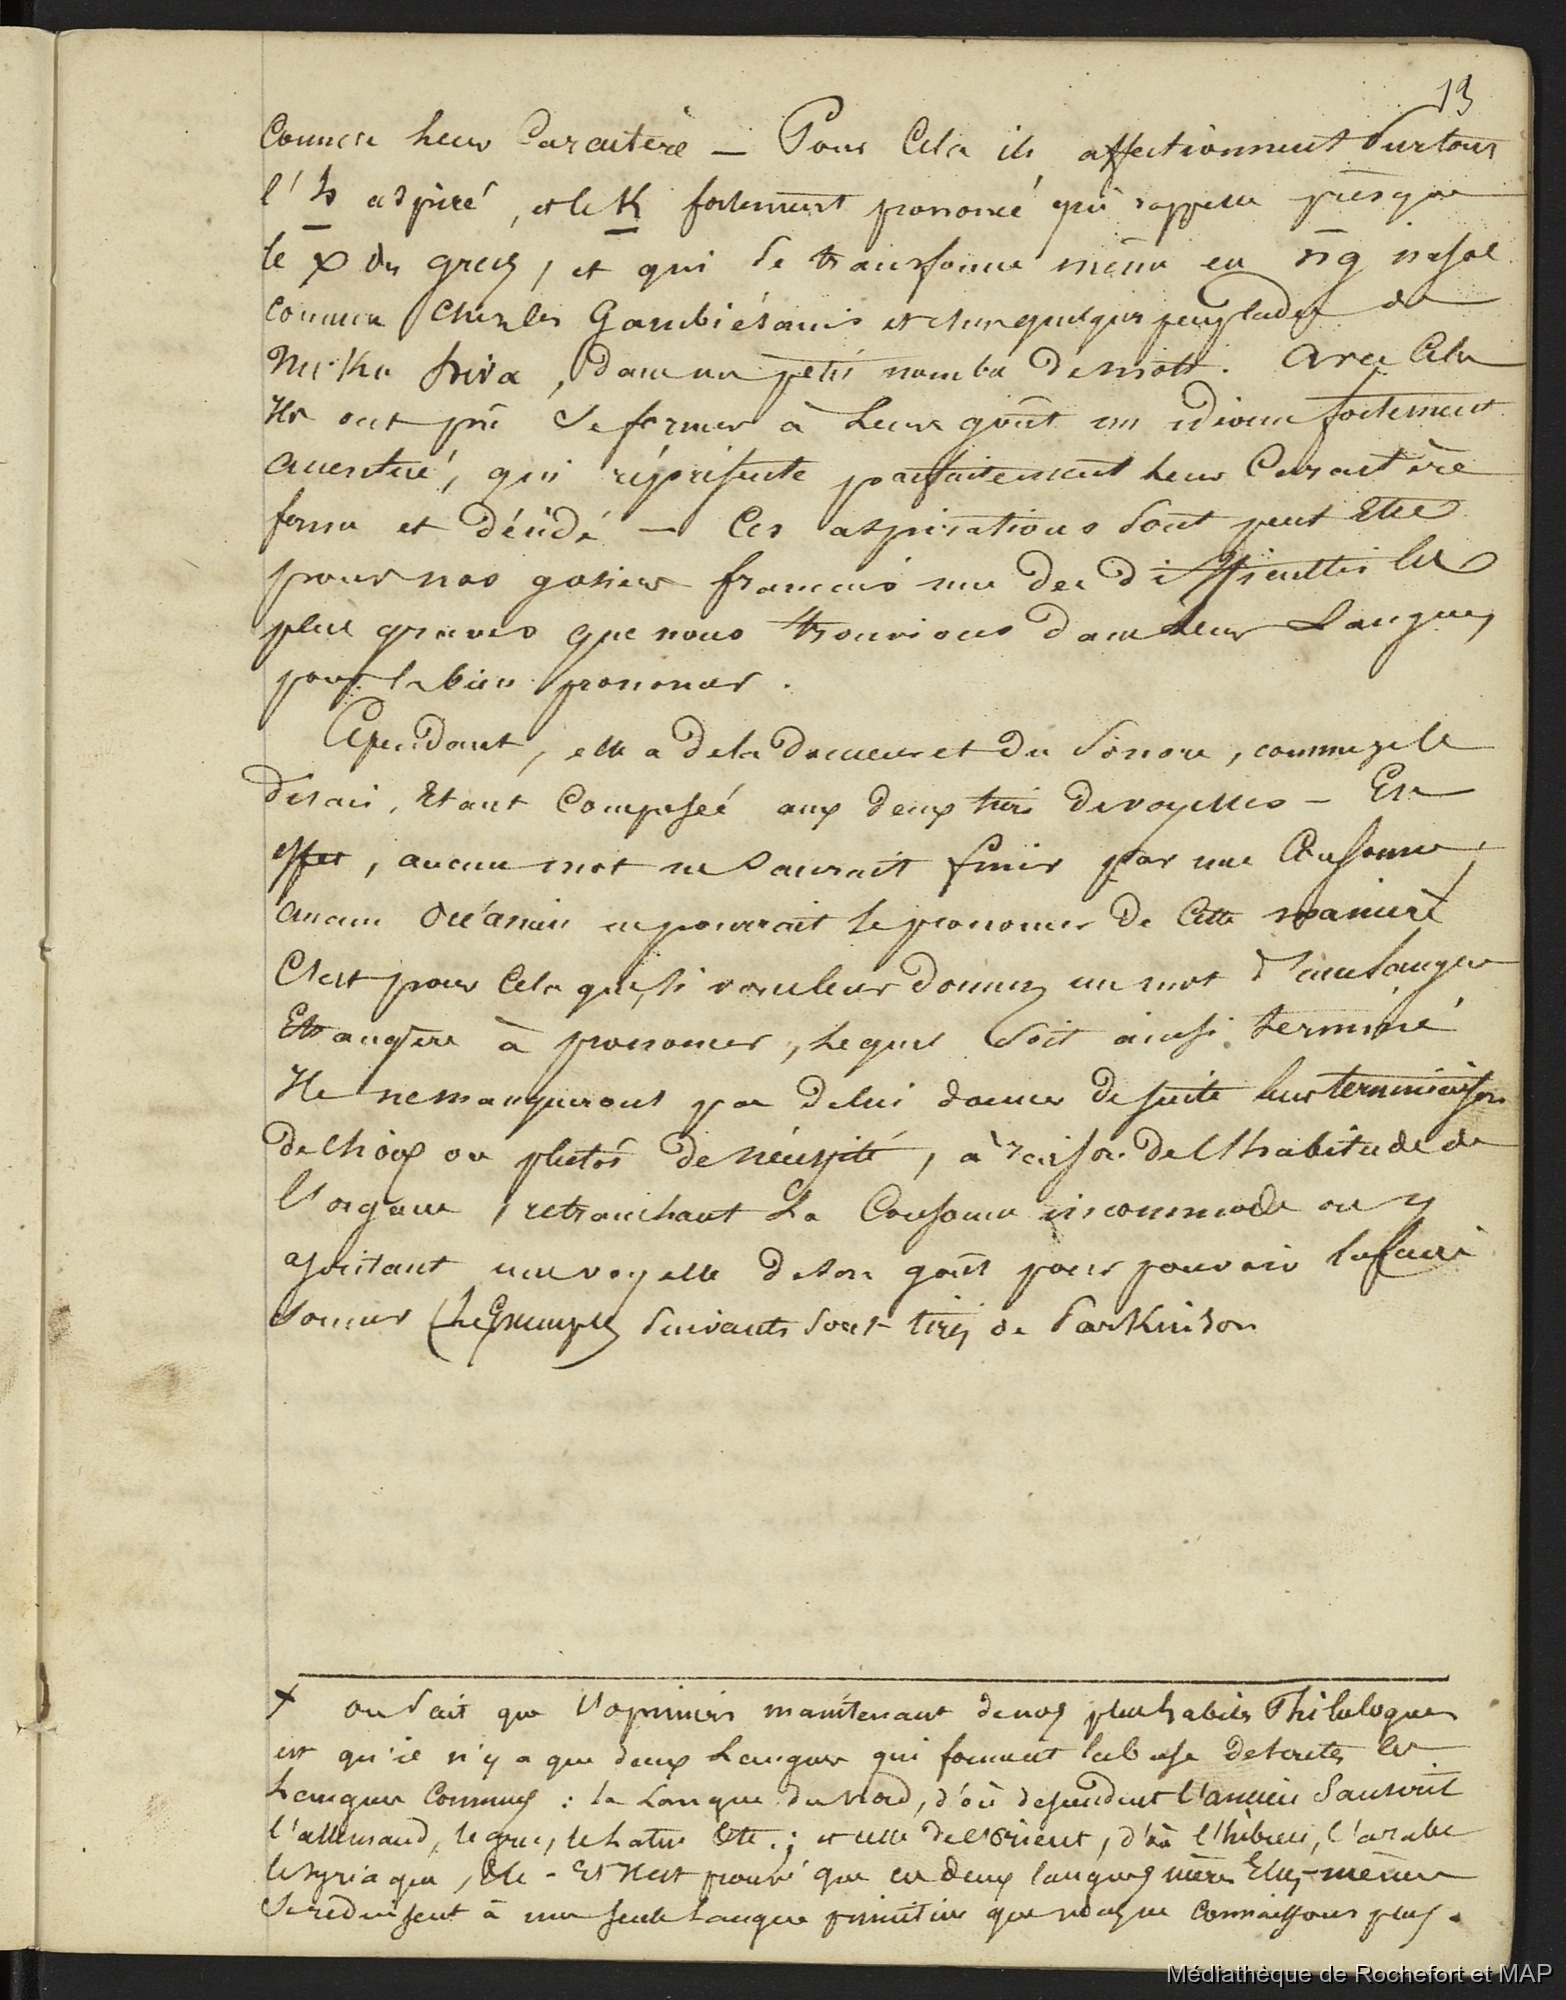 13
Comme leur Caractère — Pour Cela ils affectionnent Surtout
l'h aspiré, et le K fortement prononcé qui rappelle presque
le χ des grecs, et qui se transforme même en ng nasal
comme chez les Gambiésanis et chez quelques peuplades de
Nu-ku hiva, dans un petit nombre de mots. Avec Cela
Ils ont pû se former à leur goût un idiome fortement
accentué, qui réprésente parfaitement leur Caractère
ferme et décidé — Ces aspirations sont peut Etre
pour nos gosiers français une des difficultés les
plus graves que nous trouvions dans leur Langue,
pour la bien prononcer.
Cependant, elle a de la douceur et du Sonore, comme je le
disais, Etant Composée aux deux tiers de voyelles — En
effet, aucun mot ne saurait finir par une Consonne,
Aucun Océanien ne pourrait le prononcer de Cette manière
C'est pour Cela que, si vous leur donnez un mot d'une langue
Etrangère à prononcer, lequel soit ainsi terminé
Ils ne manqueront pas de lui donner de suite leur terminaison
de choix ou plutôt de nécessité, à raison de l'habitude de
l'organe, retranchant La Consonne incommode ou y
ajoutant une voyelle de son goût pour pouvoir la faire
sonner (Les Exemples suivants sont tirés de Parkinson
+ on sait que l'opinion maintenant de nos plus habiles Philologues
est qu'il n'y a que deux Langues qui forment la base de toutes les
Langues Connues : la Langue du Nord, d'où dependent l'ancien Sanscrit
l'allemand, le grec, le latin Etc. ; et celle de l'orient, d'où l'hébreu, l'arabe
le syriaque, Etc - Et Il est prouvé que ces deux langues mères Elles-mêmes
se reduisent à une seule Langue primitive que nous ne connaissons plus.
Médiathèque de Rochefort et MAP